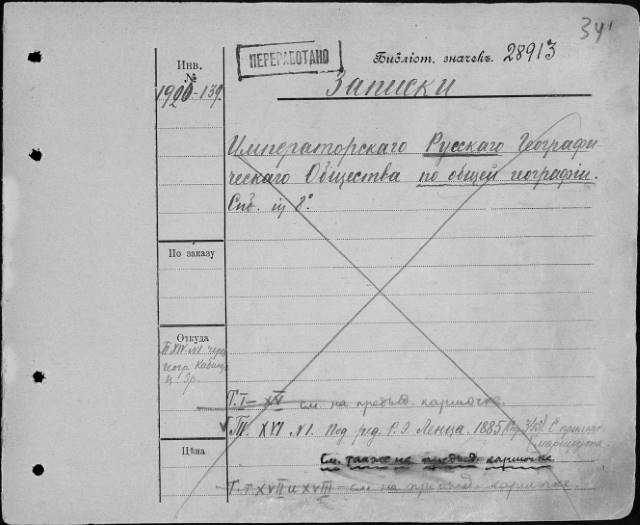 34
ПЕРЕРАБОТАНО
Библіот. значекъ. 28913
Инв.
№
1920-139.
Записки
Императорскаго Русскаго Географи-
ческаго Общества по общей географіи.
Спб. in 8°.
По заказу
Откуда
Т. XIV. №1. чрез
геогр. Кабин.
Цѣна
Т. I–XV см. на предыд. карточке.
Т. XVI №1. Под ред. Р. Э. Ленца. 1885
См. также на предыд. карточке.
Т. XVII и XVIII – см. на предыд. карточке.